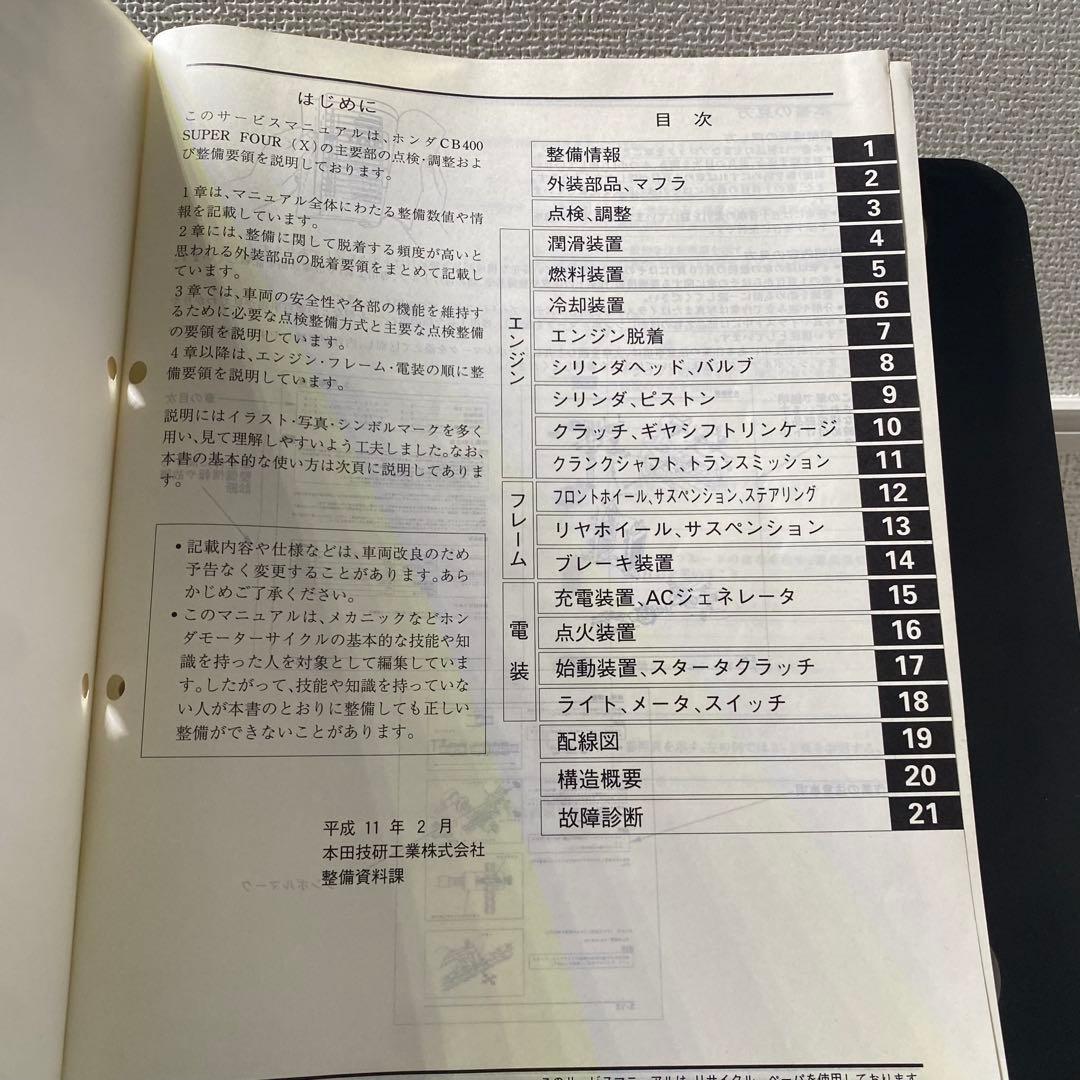 はじめに
このサービスマニュアルは、ホンダCB400
SUPER FOUR (X)の主要部の点検・調整およ
び整備要領を説明しております。
1章は、マニュアル全体にわたる整備数値や情
報を記載しています。
2章には、整備に関して脱着する頻度が高いと
思われる外装部品の脱着要領をまとめて記載し
ています。
3章では、車両の安全性や各部の機能を維持す
るために必要な点検整備方式と主要な点検整備
の要領を説明しています。
4章以降は、エンジン・フレーム・電装の順に整
備要領を説明しています。
説明にはイラスト・写真・シンボルマークを多く
用い、見て理解しやすいよう工夫しました。なお、
本書の基本的な使い方は次頁に説明してありま
す。
• 記載内容や仕様などは、車両改良のため
予告なく変更することがあります。あら
かじめご了承ください。
• このマニュアルは、メカニックなどホン
ダモーターサイクルの基本的な技能や知
識を持った人を対象として編集していま
す。したがって、技能や知識を持っていな
い人が本書のとおりに整備しても正しい
整備ができないことがあります。
平成 11 年 2 月
本田技研工業株式会社
整備資料課
目 次
整備情報 1
外装部品、マフラ 2
点検、調整 3
エンジン
潤滑装置 4
燃料装置 5
冷却装置 6
エンジン脱着 7
シリンダヘッド、バルブ 8
シリンダ、ピストン 9
クラッチ、ギヤシフトリンケージ 10
クランクシャフト、トランスミッション 11
フレーム
フロントホイール、サスペンション、ステアリング 12
リヤホイール、サスペンション 13
ブレーキ装置 14
電装
充電装置、ACジェネレータ 15
点火装置 16
始動装置、スタータクラッチ 17
ライト、メータ、スイッチ 18
配線図 19
構造概要 20
故障診断 21
このサービスマニュアルは、リサイクル ペーパを使用しております